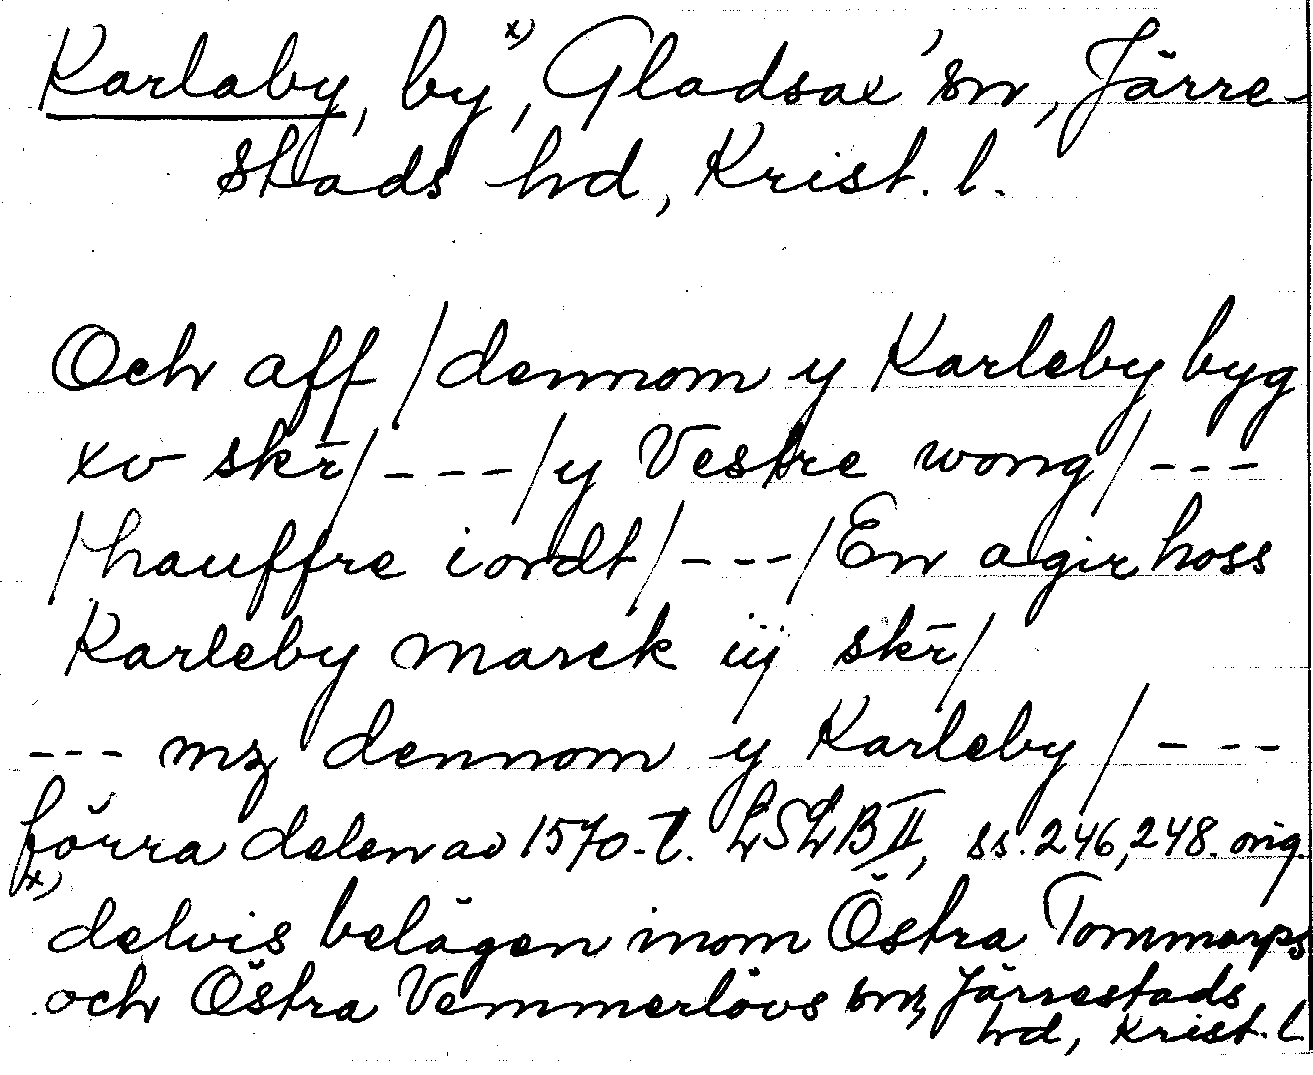 Karlaby, by x), Gladsax' sn, Järre-
stads hd, Krist. l.
Och aff / dennom y Karleby byg
xv skr̄ / - - - / y Vestre wong / - - -
/ hauffre iordt / - - - / En agir hoss
Karleby marck iij skr̄ /
- - - mz dennom y Karleby / - - -
förra delen av 1570-t. LSLB II, ss. 246, 248. orig.
x) delvis belägen inom Östra Tommarps
och Östra Vemmerlövs snr, Järrestads
hd, Krist. l.